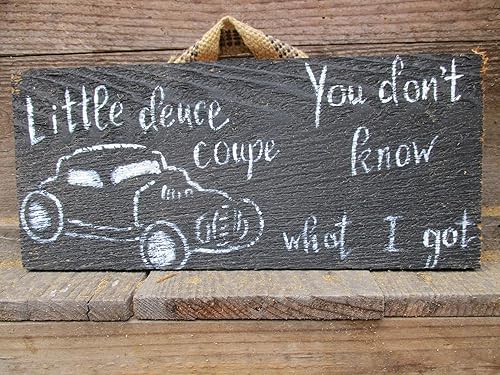 Little deuce
coupe
You don't
know
what I got